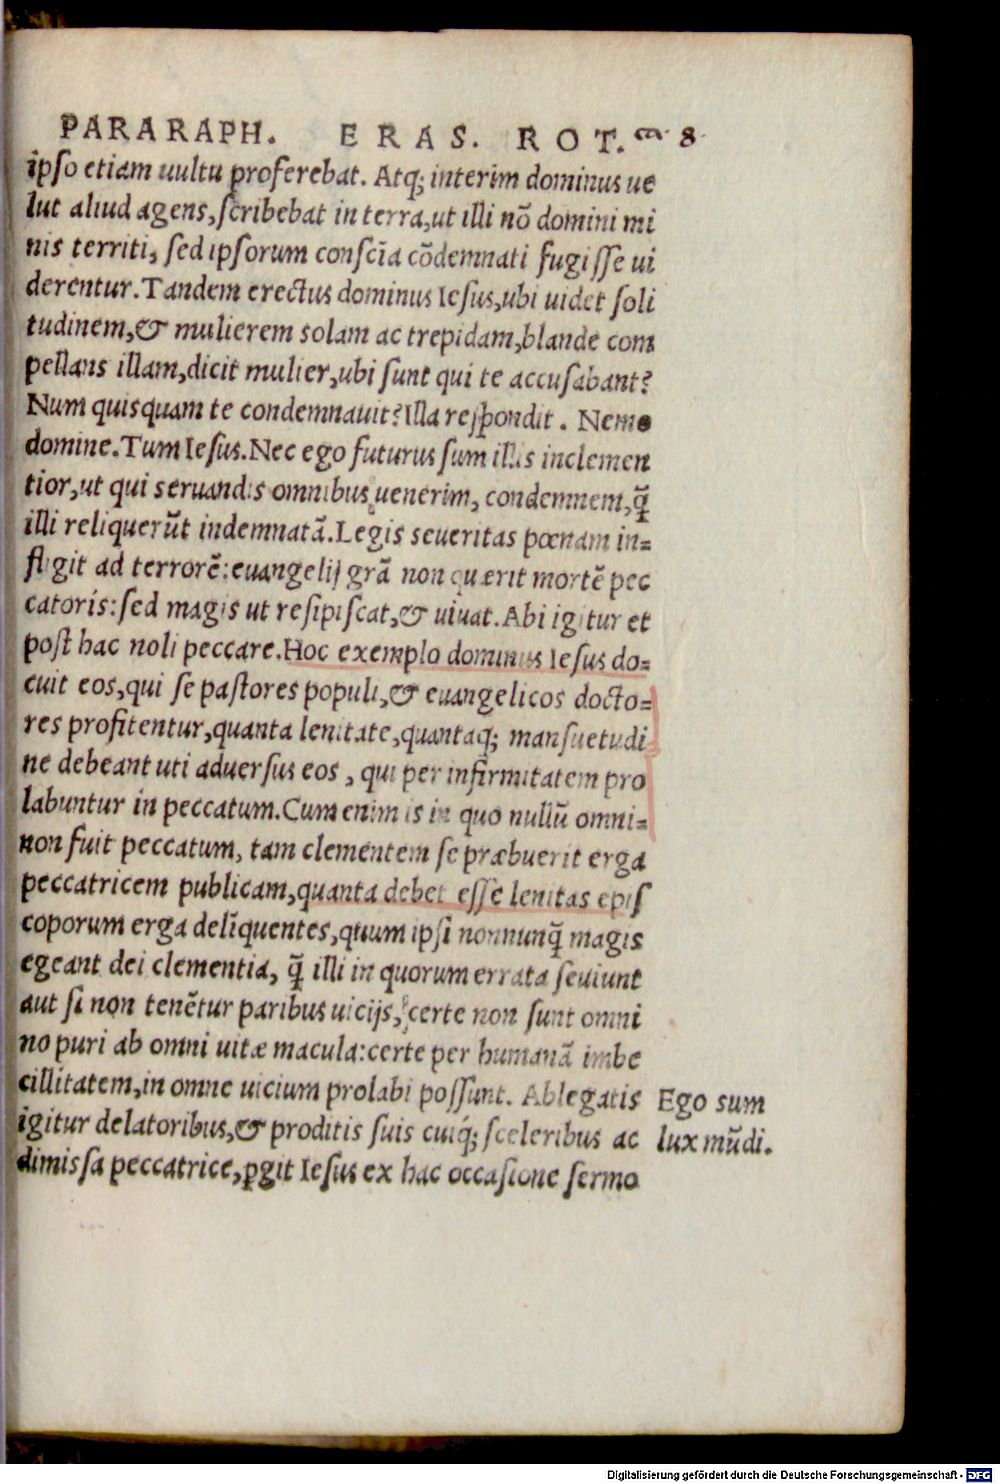 PARARAPH. ERAS. ROT. 8.
ipso etiam uultu proferebat. Atq; interim dominus ue
lut aliud agens, scribebat in terra, ut illi nõ domini mi
nis territi, sed ipsorum consciã cõdemnati fugisse ui
derentur. Tandem erectus dominus Iesus, ubi uidet soli
tudinem, & mulierem solam ac trepidam, blande com
pellans illam, dicit mulier, ubi sunt qui te accusabant?
Num quisquam te condemnauit? Illa respondit. Nemo
domine. Tum Iesus. Nec ego futurus sum illis inclemen
tior, ut qui seruandis omnibus uenerim, condemnem, q̃
illi reliquerũt indemnatã. Legis seueritas pœnam in=
fligit ad terrorẽ: euangelij grã non quærit mortẽ pec
catoris: sed magis ut resipiscat, & uiuat. Abi igitur et
post hac noli peccare. Hoc exemplo dominus Iesus do=
cuit eos, qui se pastores populi, & euangelicos docto=
res profitentur, quanta lenitate, quantaq; mansuetudi
ne debeant uti aduersus eos, qui per infirmitatem pro
labuntur in peccatum. Cum enim is in quo nullũ omni=
non fuit peccatum, tam clementem se præbuerit erga
peccatricem publicam, quanta debet esse lenitas epis
coporum erga deliq̃uentes, quum ipsi nonnunq̃ magis
egeant dei clementia, q̃ illi in quorum errata seuiunt
aut si non tenẽtur paribus uicijs, certe non sunt omni
no puri ab omni uitæ macula: certe per humanã imbe
cillitatem, in omne uicium prolabi possunt. Ablegatis
igitur delatoribus, & proditis suis cuiq́; sceleribus ac
dimissa peccatrice, ꝑgit Iesus ex hac occasione sermo
Ego sum
lux mũdi.
Digitalisierung gefördert durch die Deutsche Forschungsgemeinschaft - DFG